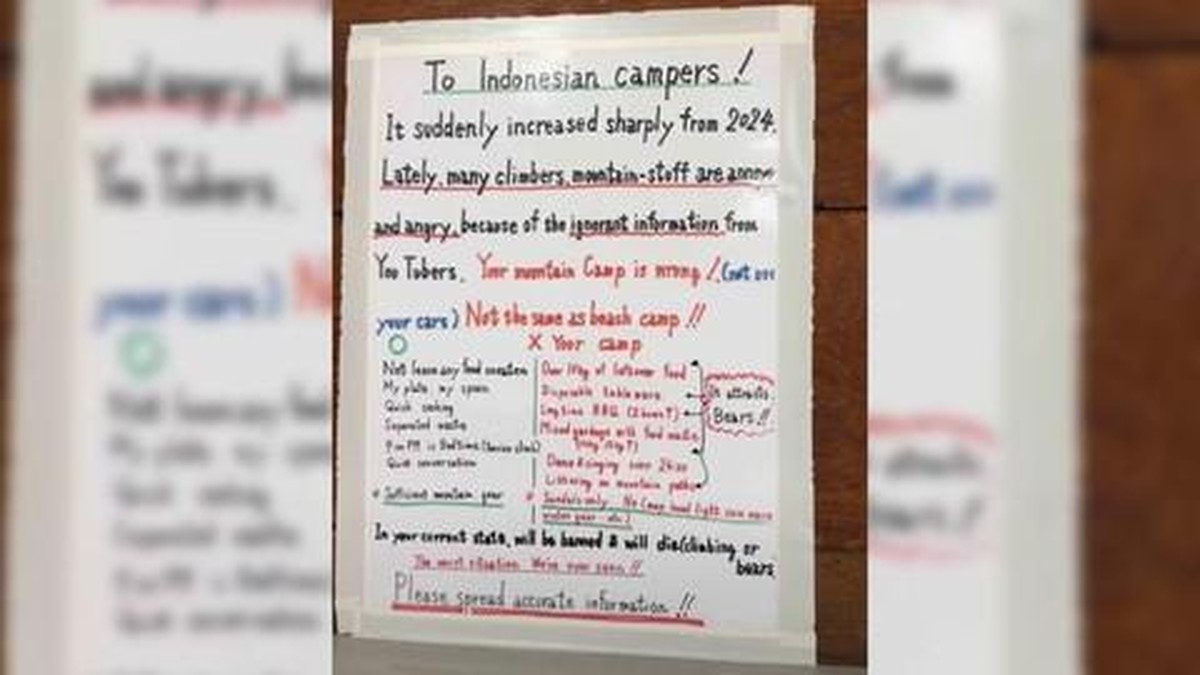 To Indonesian campers!
It suddenly increased sharply from 2024.
Lately, many climbers, mountain-stoff are
and angry, because of the ignorant information from
You Tubers. Your mountain Camp is wrong! (Get
your cars) Not the same as beach camp!!
○ X Your camp
Not leave any food
My plate my spoon
Quick cooking
Separated waste
PM is Bedtime
Quiet conversation
Sufficient mountain gear
Over of leftover food
Disposable tableware
Long time BBQ
Mixed garbage with food waste
Dance & singing over
Listening on mountain paths
Sandals only. No head light rain wear
winter gear etc)
It attracts
Bears!!
In your current state, will be banned & will die (climbing or
bears
The worst situation We've ever seen!!
Please spread accurate information!!